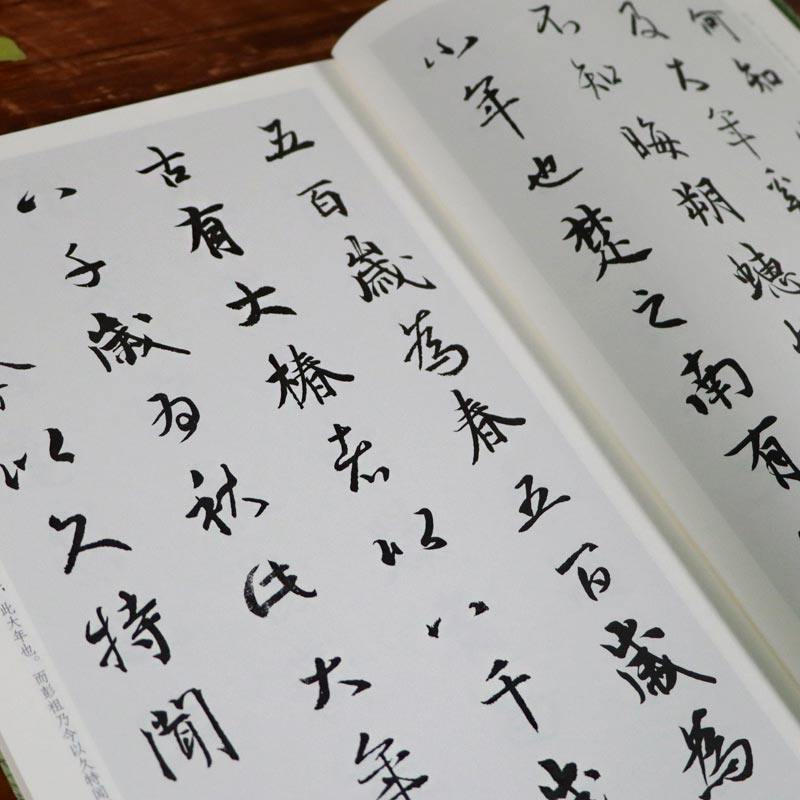 何知
及大年奚
不知晦朔蟪
小年也楚之南有
五百歲為春五百歲為
古有大椿者以八千歲
八千歲为秋此大年
今以久特聞
；此大年也。而彭祖乃今以久特闻